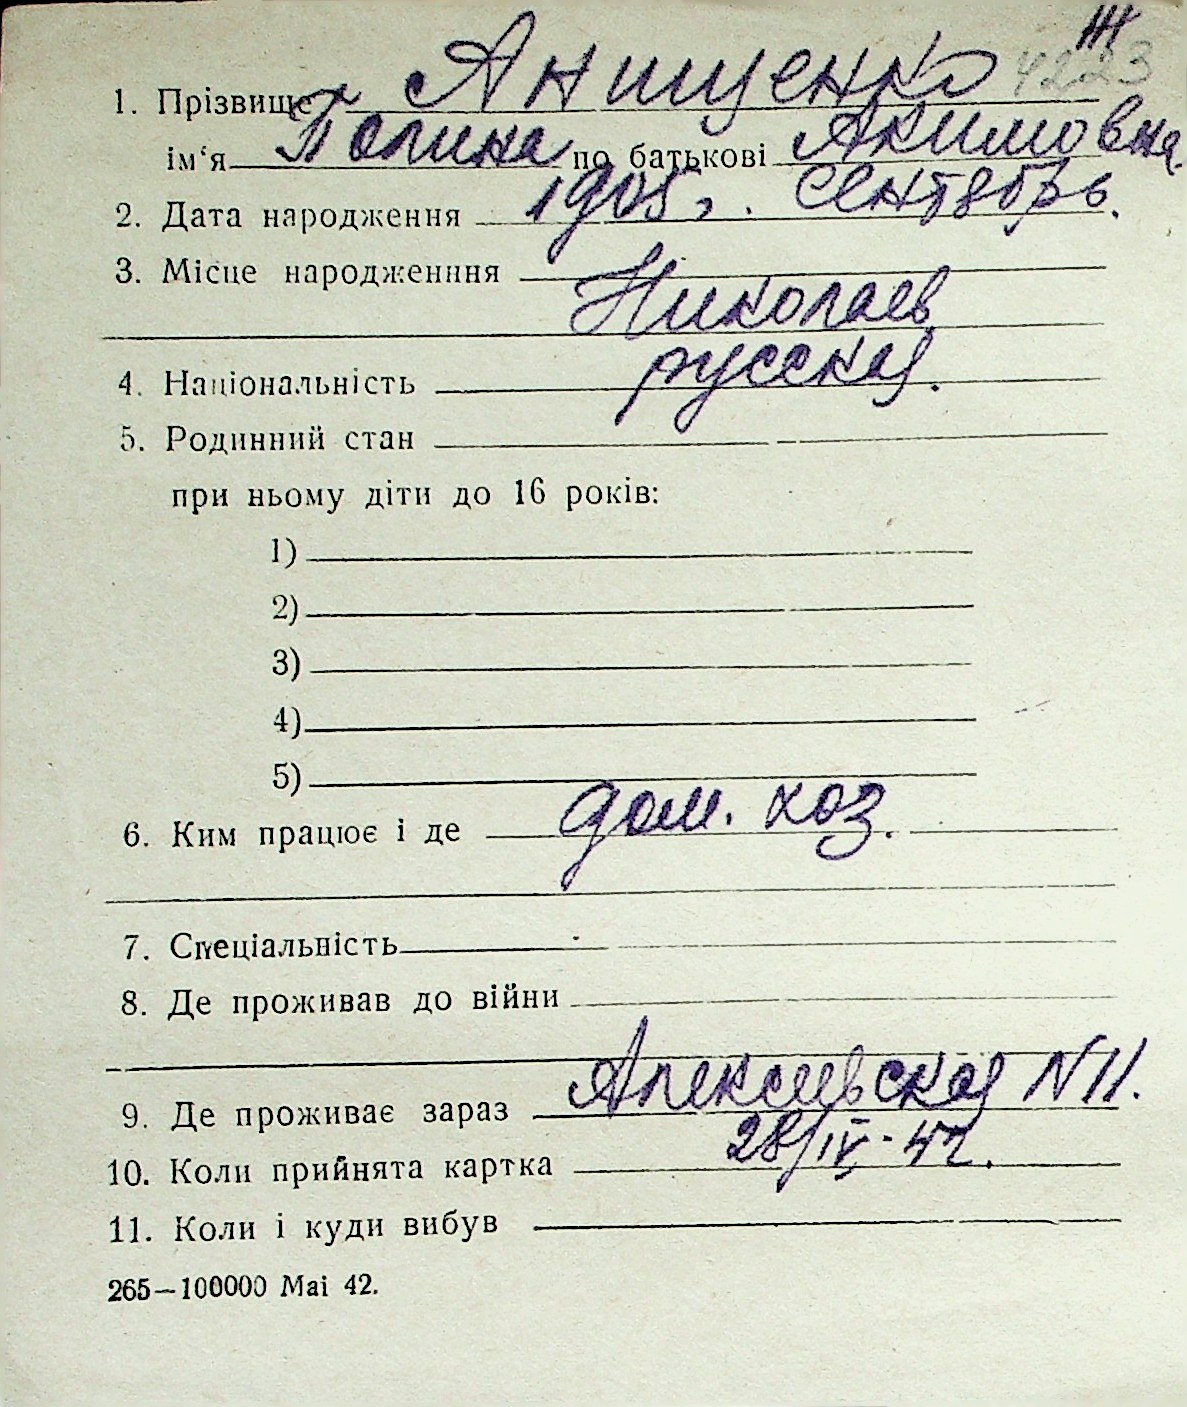 Ж
4223
1. Прізвище Анищенко
ім‘я Полина по батькові Акимовна
2. Дата народження 1905 г. Сентябрь.
3. Місце народженння
Николаев
4. Національність русская.
5. Родинний стан
при ньому діти до 16 років:
1)
2)
3)
4)
5)
6. Ким працює і де дом. хоз.
7. Спеціальність
8. Де проживав до війни
9. Де проживає зараз Алексеевская N 11.
10. Коли прийнята картка 28/IV - 42.
11. Коли і куди вибув
265—100000 Mai 42.